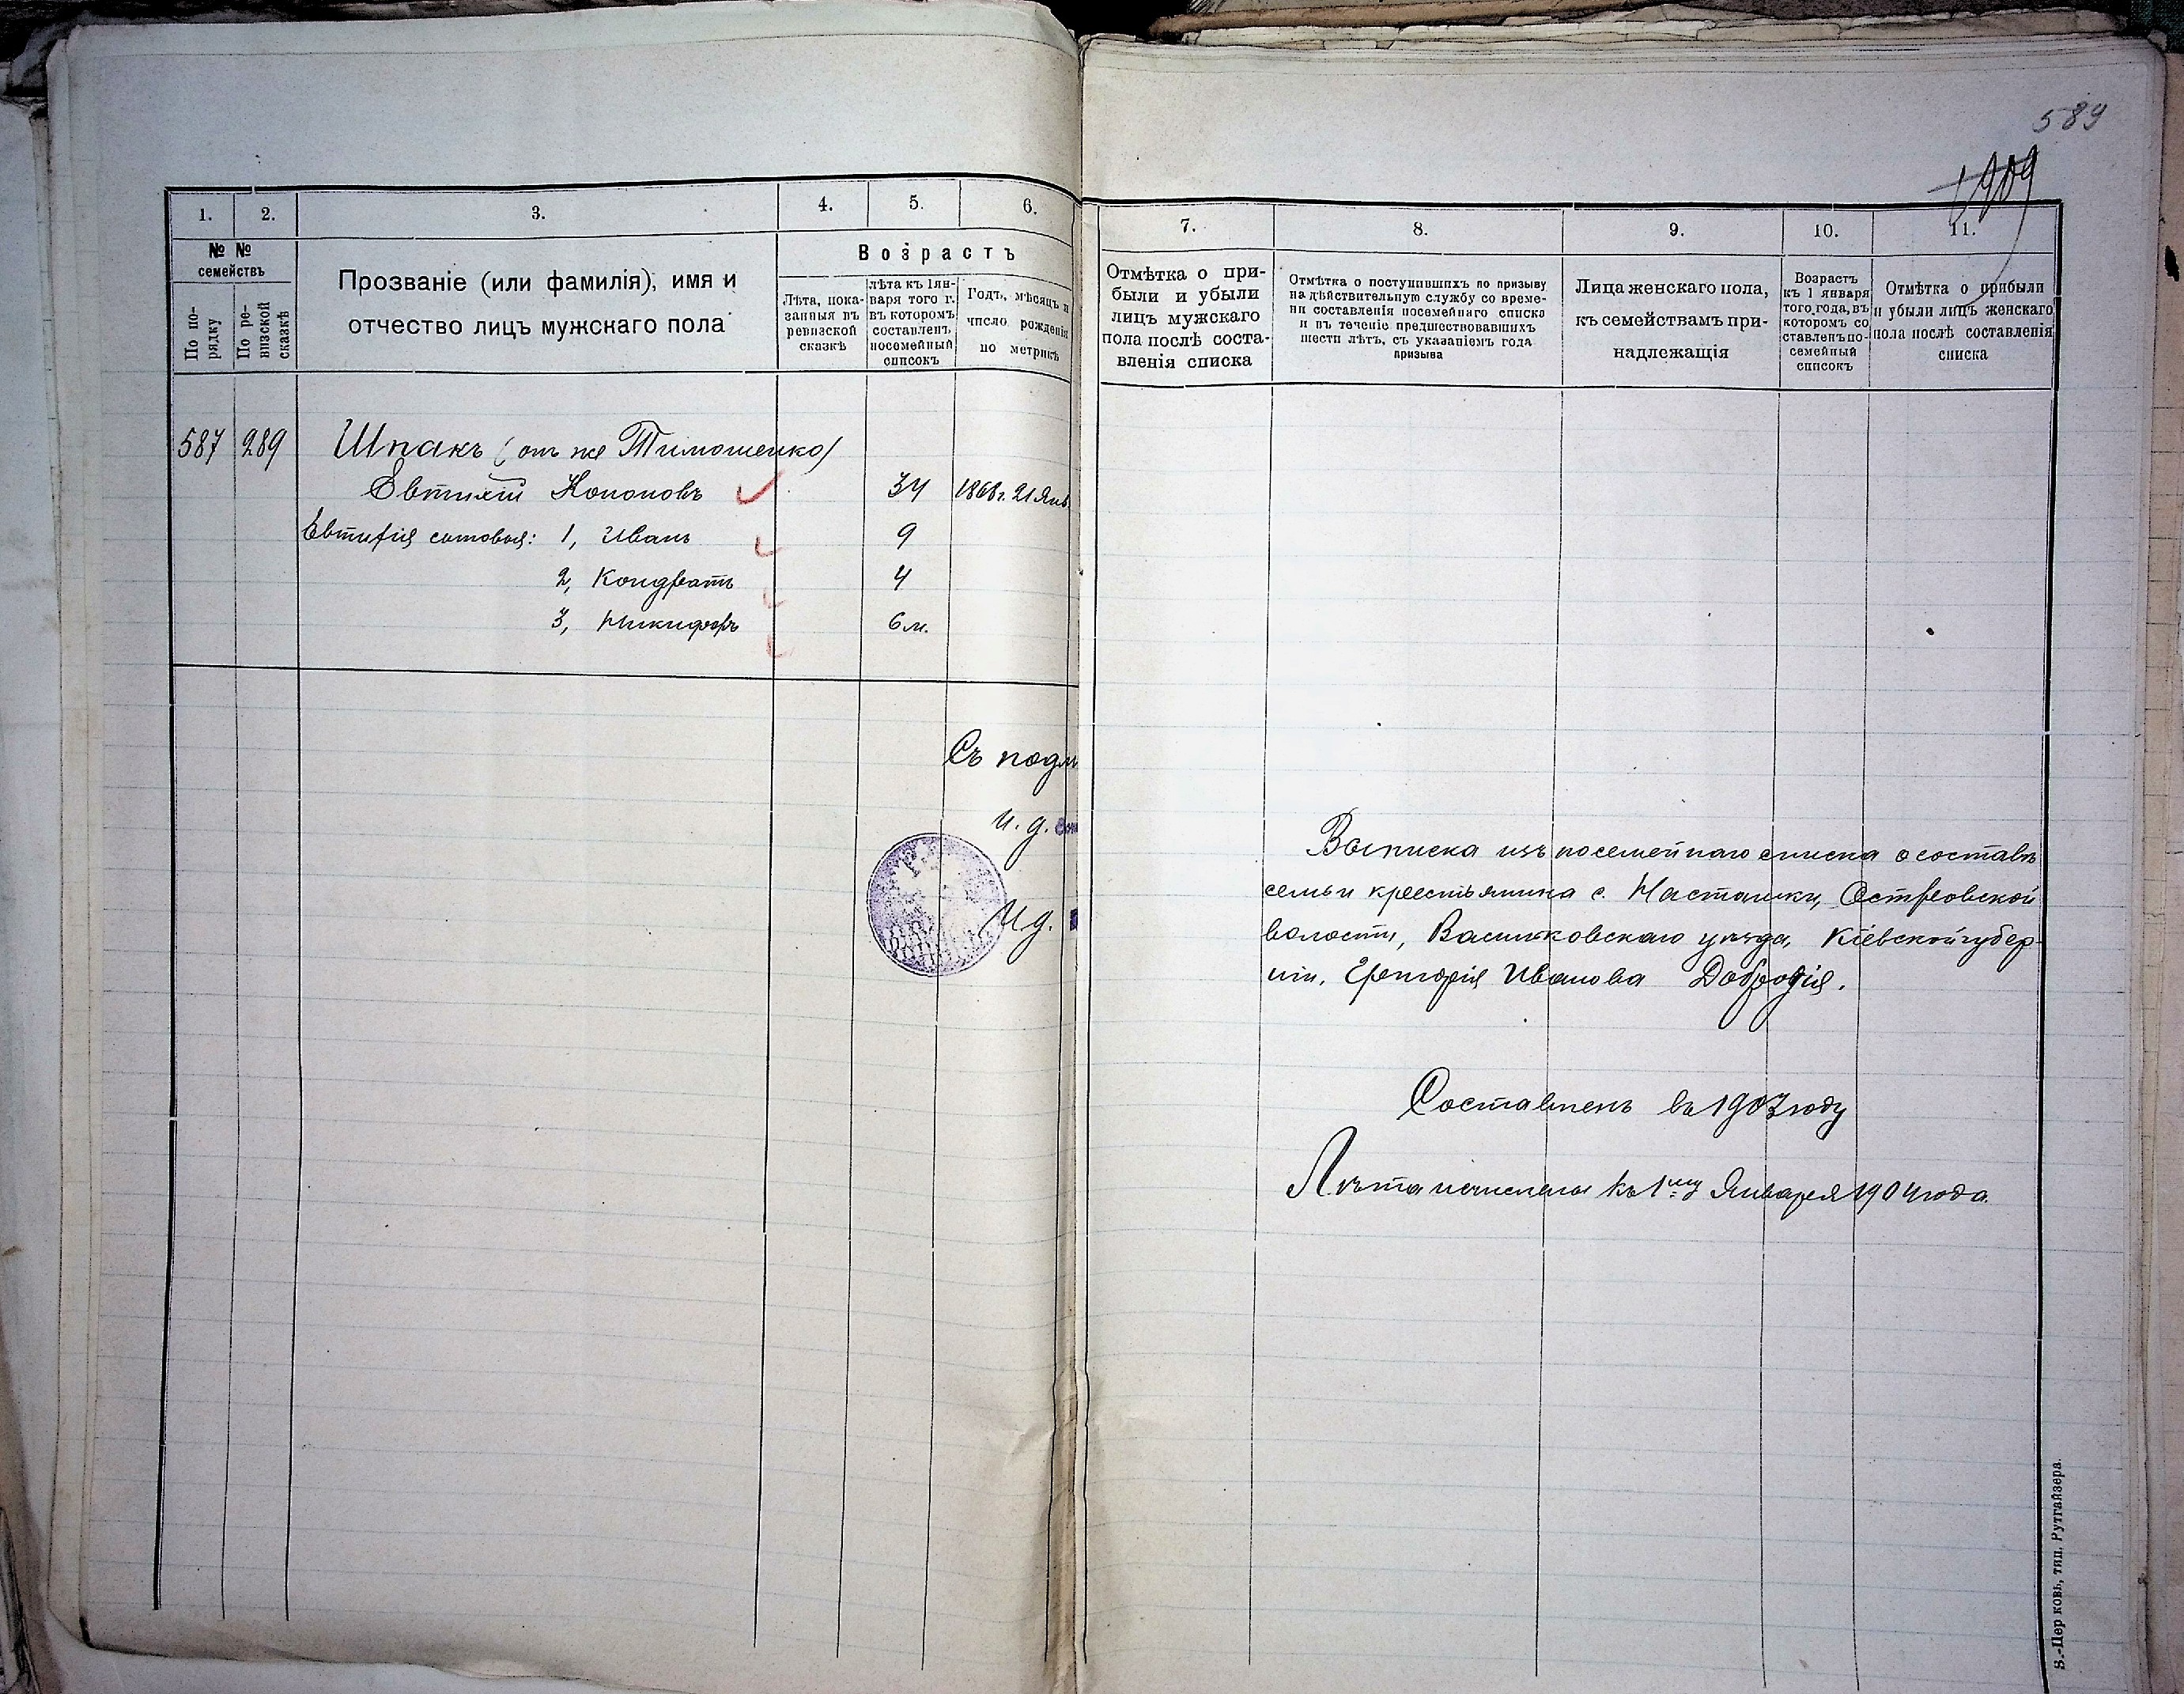 589
1909
1.
2.
3.
4.
5.
6.
№ №
семействъ
По по-
рядку
По ре-
визской
сказкѣ
Прозваніе (или фамилія), имя и
отчество лицъ мужскаго пола
Возрастъ
Лѣта, пока-
занныя въ
ревизской
сказкѣ
лѣта къ 1 ян-
варя того г.
въ которомъ
составленъ
посемейный
списокъ
Годъ, мѣсяцъ и
число рожденія
по метрикѣ
587
289
Шпакъ (онъ же Тимошенко)
Евтихій Кононовъ
34
1868 г. 21 Янв.
Евтихія сыновья: 1, Иванъ
9
2, Кондратъ
4
3, Никифоръ
6 м.
Съ подл
И. д.
И д.
7.
8.
9.
10.
11.
Отмѣтка о при-
были и убыли
лицъ мужскаго
пола послѣ соста-
вленія списка
Отмѣтка о поступившихъ по призыву
на дѣйствительную службу со време-
ни составленія посемейнаго списка
и въ теченіе предшествовавшихъ
шести лѣтъ, съ указаніемъ года
призыва
Лица женскаго пола,
къ семействамъ при-
надлежащія
Возрастъ
къ 1 января
того года, въ
которомъ со
ставленъ по-
семейный
списокъ
Отмѣтка о прибыли
и убыли лицъ женскаго
пола послѣ составленія
списка
Выписка изъ посемейнаго списка о составѣ
семьи крестьянина с. Насташки, Острѳовской
волости, Васильковскаго уѣзда, Кіевской губер-
ніи, Григорія Иванова
Составленъ въ 1903 году
Лѣта исчислены къ 1му Января 1904 года.
Б.-Цер ковь, тип. Рутгайзера.